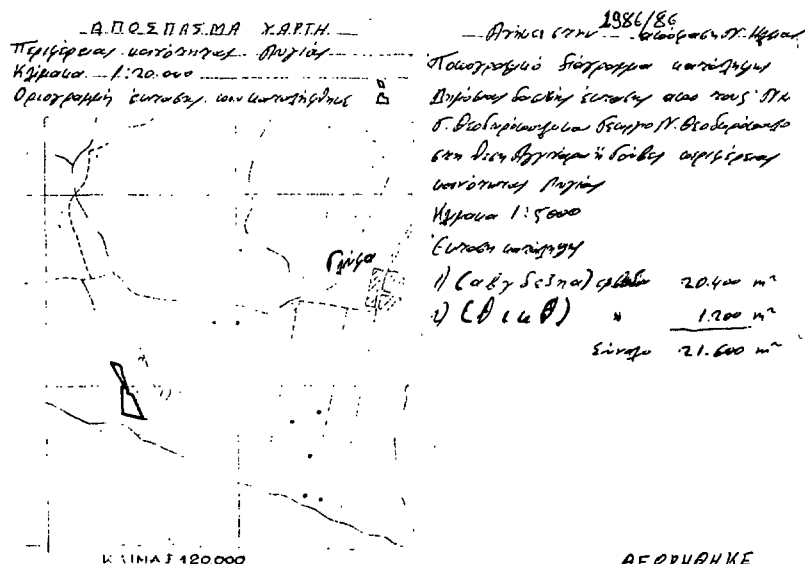 ΑΠΟΣΠΑΣΜΑ ΧΑΡΤΗ
Περιφέρειας κοινότητας Λυγιάς
Κλίμακα 1:20.000
Οριογραμμή έκτασης που κατελήφθηκε
Γλύφα
ΚΛΙΜΑΞ 1 20.000
1986/86
Ανήκει στην απόφαση Ν.
Τοπογραφικό διάγραμμα κατάληψης
Δημόσιας δασικής έκτασης από τους
στη θέση ή περιφέρειας
κοινότητας Λυγιάς
Κλίμακα 1:5000
Έκταση κατάληψης
1) (α β γ δ ε ζ η α) εμβαδόν 20.400 m²
2) (θ ι κ θ) " 1.200 m²
Σύνολο 21.600 m²
ΑΕΩΡΗΘΗΚΕ